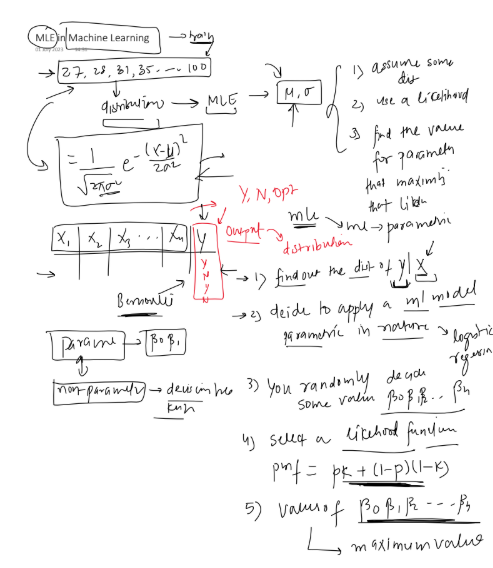 MLE in Machine Learning → train
→ 27, 28, 31, 35 ... 100
distribution → MLE → μ, σ
1) assume some dist
2) use a likelihood
3) find the value
for parameter
that maximi
that likeli
= 1/√2πσ² e^-(x-μ)²/2σ²
Y, N, Opt
output → distribution
mle → ml → parametric
X1 X2 X3 ... Xn Y
Y
N
Y
N
Bernoulli
→ 1) find out the dist of y|X
→ 2) decide to apply a ml model
parametric in nature → logistic
regression
parame → β0 β1
non-parametric → decision tree
KNN
3) You randomly decide
some value β0 β1 β2 .. βn
4) select a likelihood function
pmf = pk + (1-p)(1-k)
5) value of β0 β1 β2 --- βn
→ maximum value